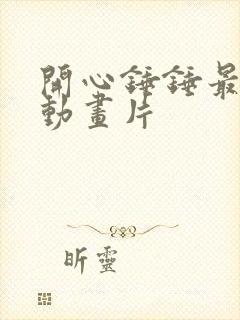 開心錘錘最
動畫片
昕靈